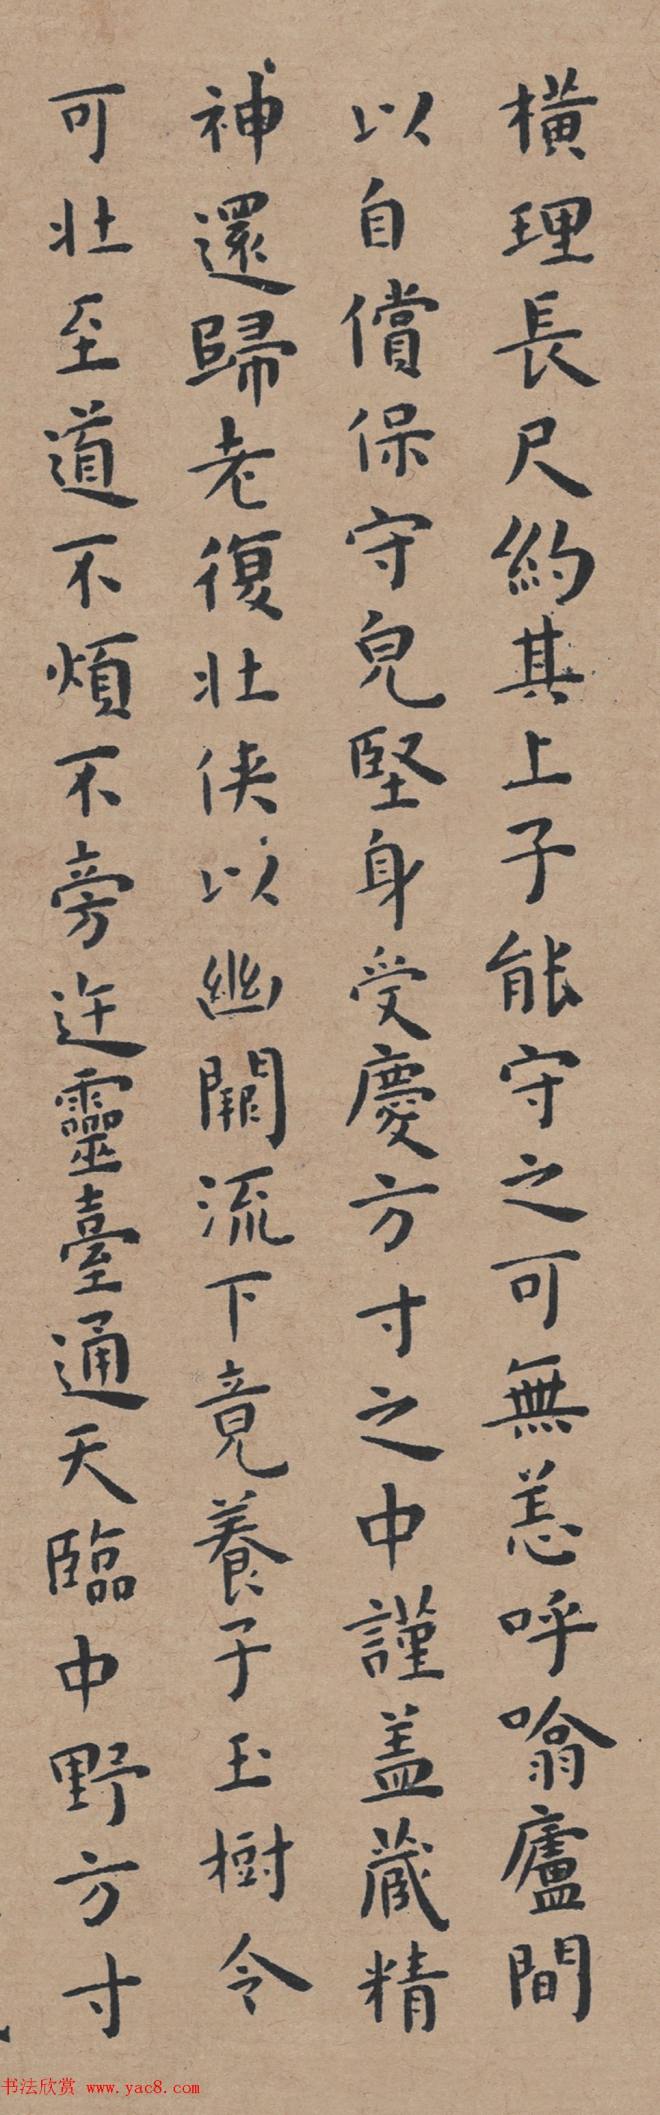 橫理長尺約其上子能守之可無恙呼噏廬間
以自償保守皃堅身受慶方寸之中謹盖藏精
神還歸老復壯侠以幽闕流下竟養子玉樹令
可壯至道不煩不旁迕靈臺通天臨中野方寸
书法欣赏 www.yac8.com